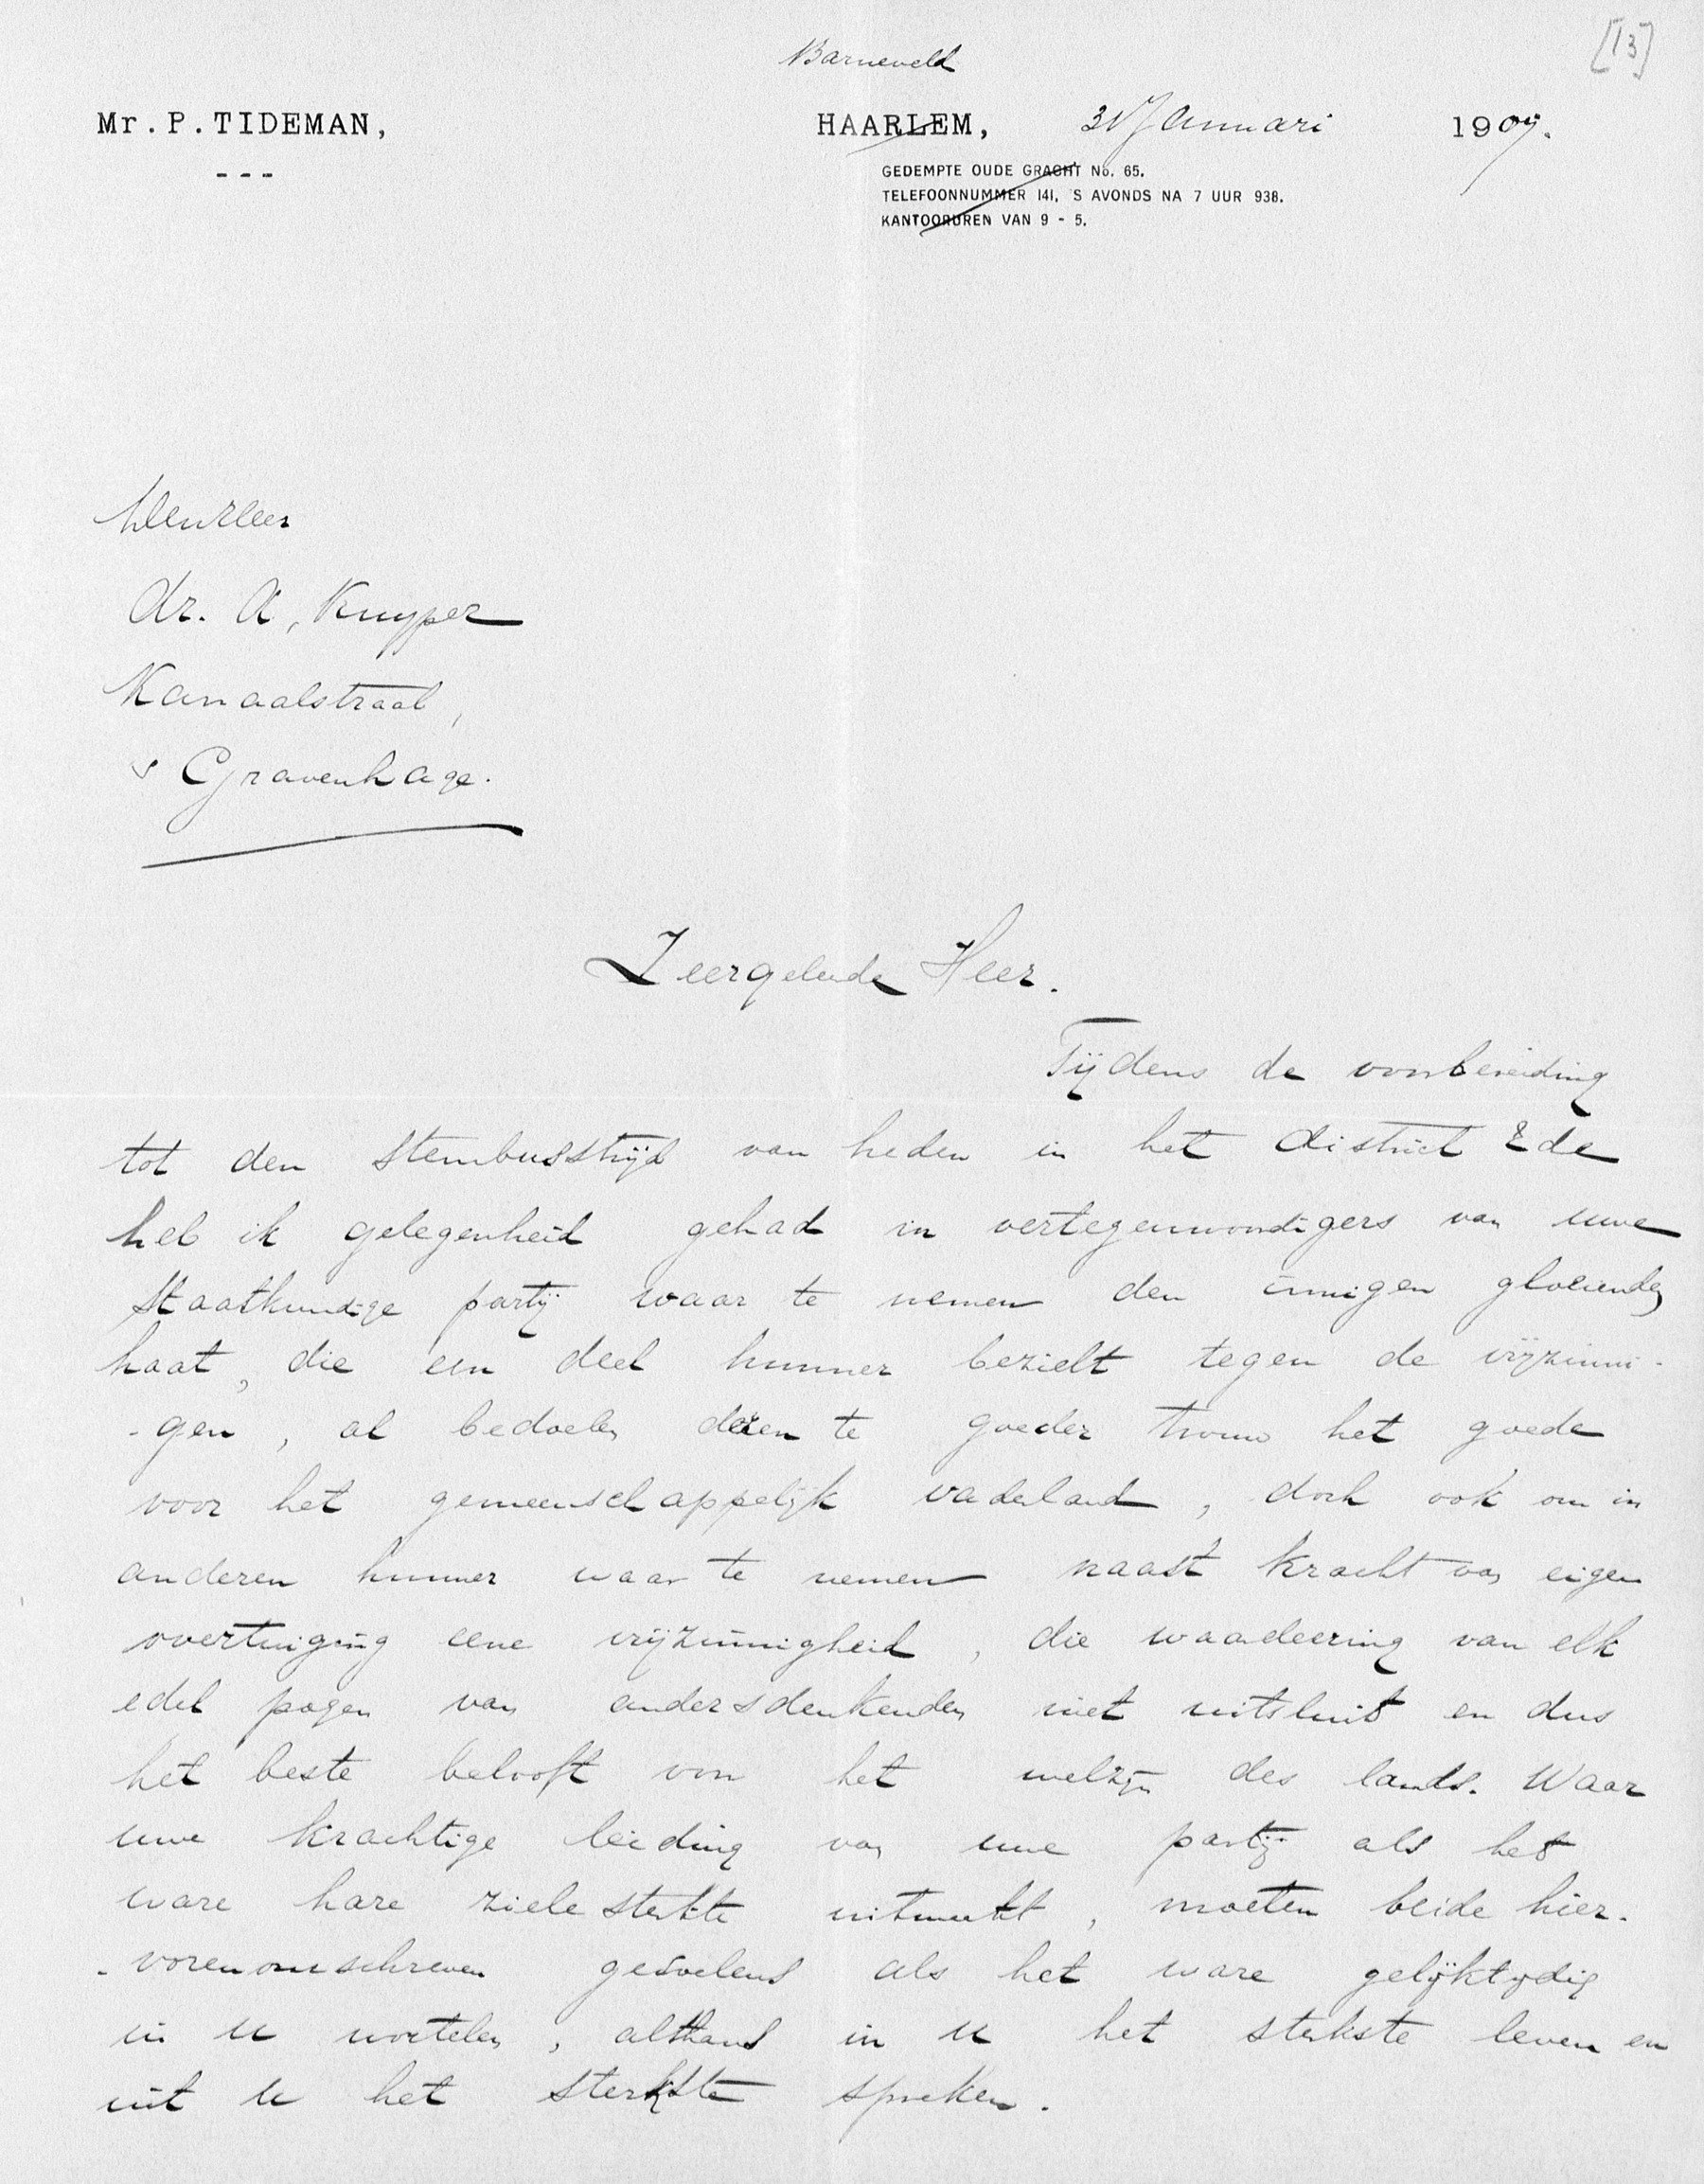 [13]
Barneveld
Mr. P. TIDEMAN, HAARLEM, 31 Januari 1907.
---
GEDEMPTE OUDE GRACHT No. 65.
TELEFOONNUMMER 141, 'S AVONDS NA 7 UUR 938.
KANTOORUREN VAN 9 - 5.
Dr. A. Kuyper
Kanaalstraat,
s Gravenhage.
Zeergeleerde Heer.
Tijdens de voorbereiding
tot den stembusstrijd van heden in het district Ede
heb ik gelegenheid gehad in vertegenwoordigers van uwe
staatkundige partij waar te nemen den innigen gloeienden
haat, die een deel hunner bezielt tegen de vrijzinni-
-gen, al bedoelen dezen te goeder trouw het goede
voor het gemeenschappelijk vaderland, doch ook om in
anderen hunner waar te nemen naast kracht van eigen
overtuiging eene vrijzinnigheid, die waardeering van elk
edel pogen van andersdenkenden niet uitsluit en dus
het beste belooft voor het welzijn des lands. Waar
uwe krachtige leiding van uwe partij als het
ware hare ziele sterkte uitmaakt, moeten beide hier-
-vorenomschreven gevoelens als het ware gelijktijdig
in u wortelen, althans in u het sterkste leven en
uit u het sterkste spreken.